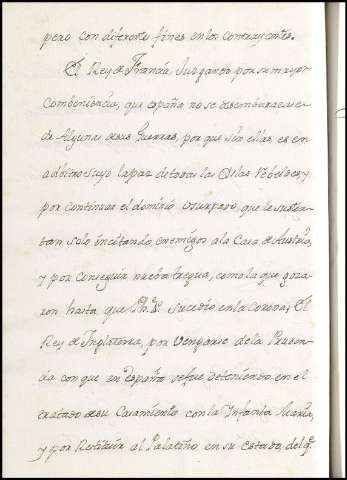 pero con diferentes fines en los contrayentes.
El Rey de Francia, Juzgando por su mayor
Combeniencia, que españa no se desembarace
de Algunas de sus Guerras, por que sin ellas, es en
adbitro suyo la paz de todas las Yslas Rebeldes, y
por continuar el dominio Vsurpado, que le susten-
tan solo incitando enemigos a la Casa de Austria,
y por conseguir nueba tregua, como la que goza-
ron hasta que Ph.
 sucedio en la Corona; El
Rey de Inglaterra, por Vengarse de la Pruden-
cia con que en españa se fue deteniendo en el
tratado de su Casamiento con la Infanta Maria,
y por Restituir al Palatino en su estado, del q.